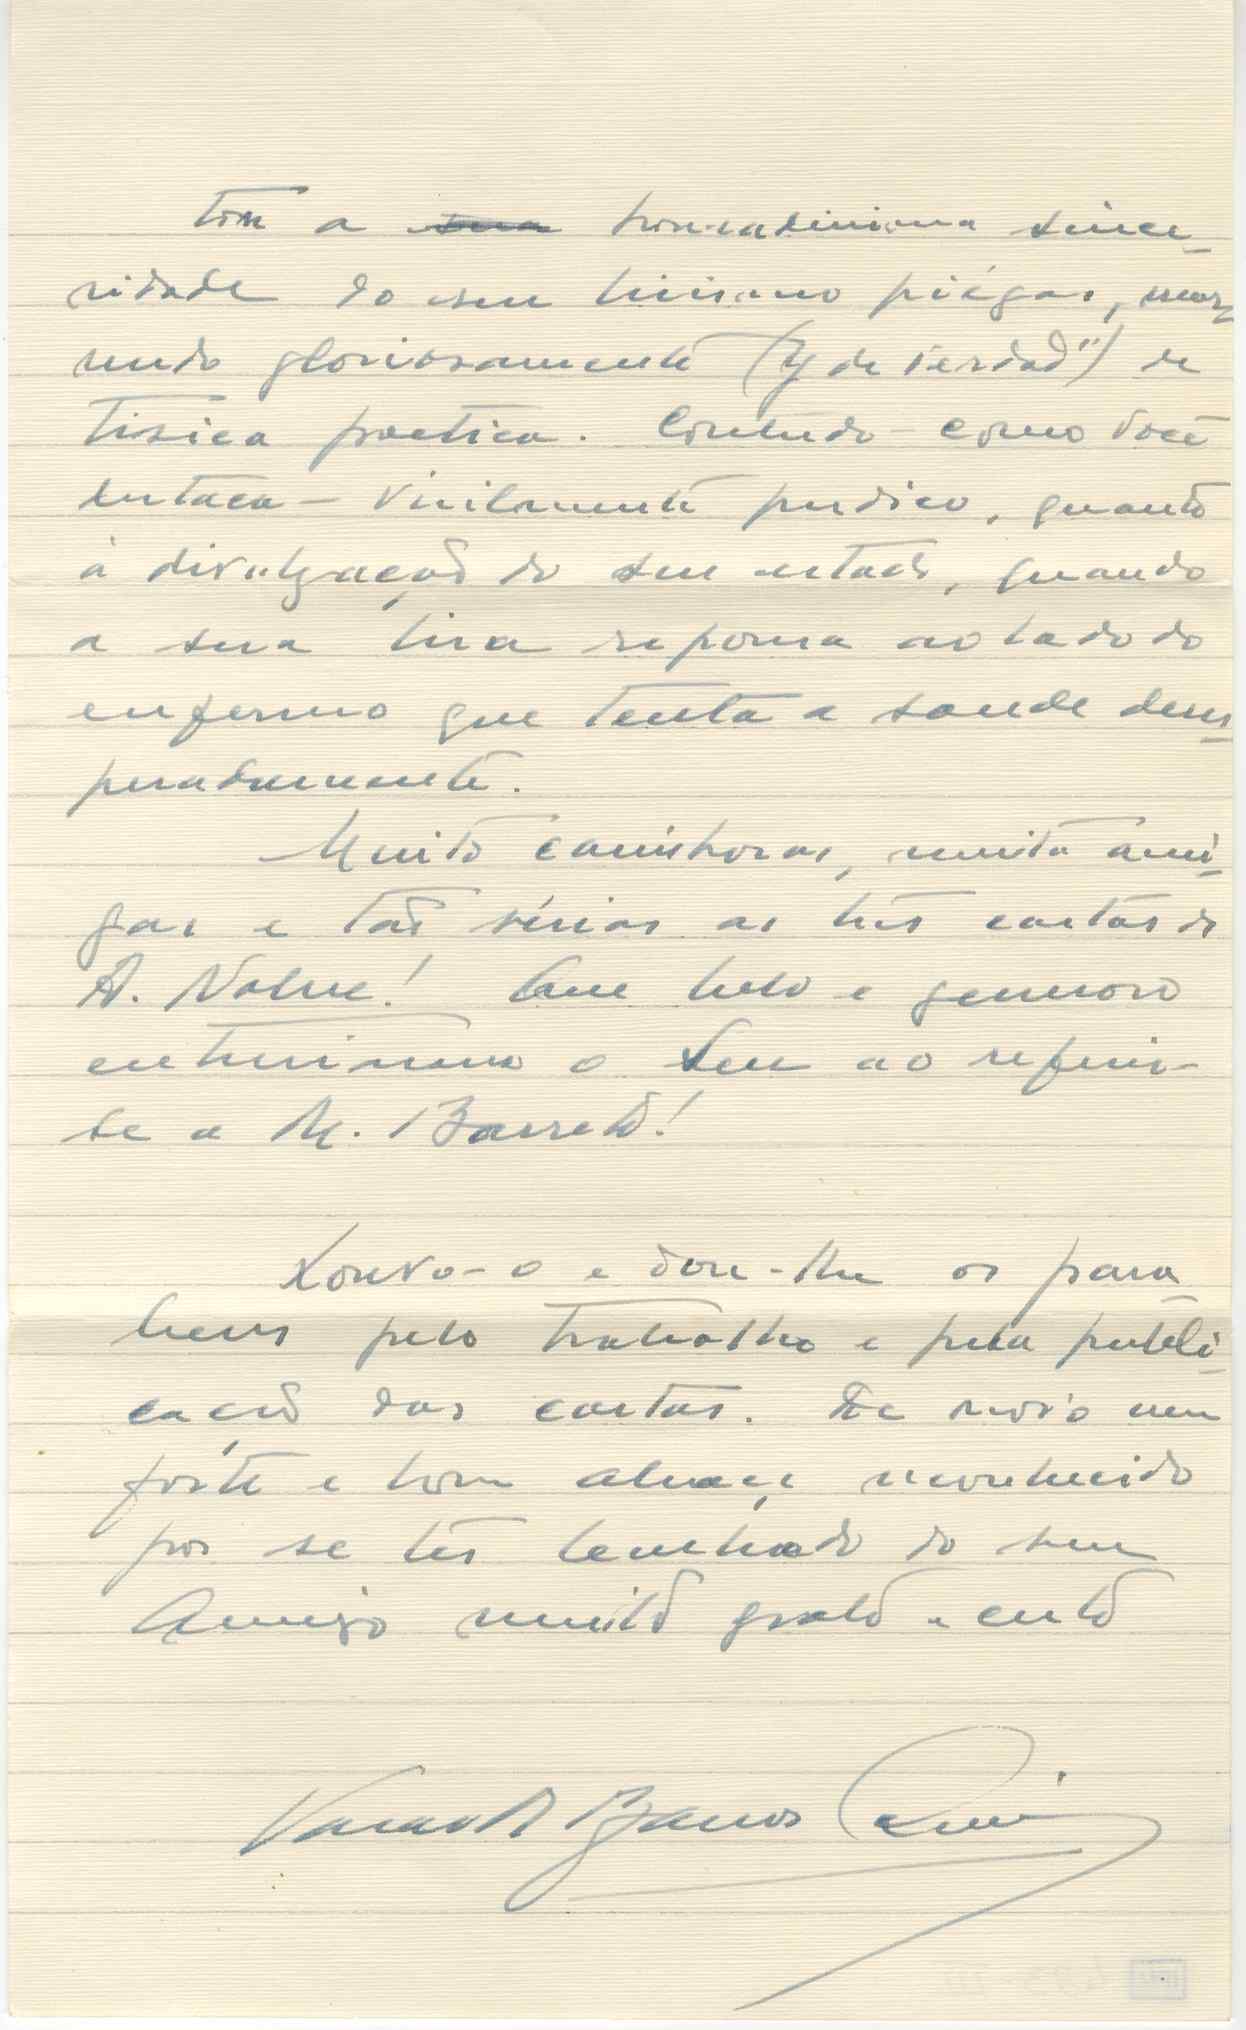 tom a ~~sua~~ bernardiniana since-
ridade do seu lirismo piégas, mor-
rendo gloriosamente (“y de verdad”) de
tisica poetica. Contudo – como Você
destaca – virilmente pudico, quanto
à divulgação do seu estado, quando
a sua lira repousa ao lado do
enfermo que tenta a saude deses-
peradamente.
Muito carinhosas, muito ami-
gas e tão sérias as três cartas de
A. Nobre! Que belo e generoso
entusiasmo o seu ao referir-
se a M. Barreto!
Louvo-o e dou-lhe os para-
bens pelo trabalho e pela publi-
cação das cartas. E envio um
forte e bom abraço reconhecido
por se ter lembrado do seu
Amigo muito grato e certo